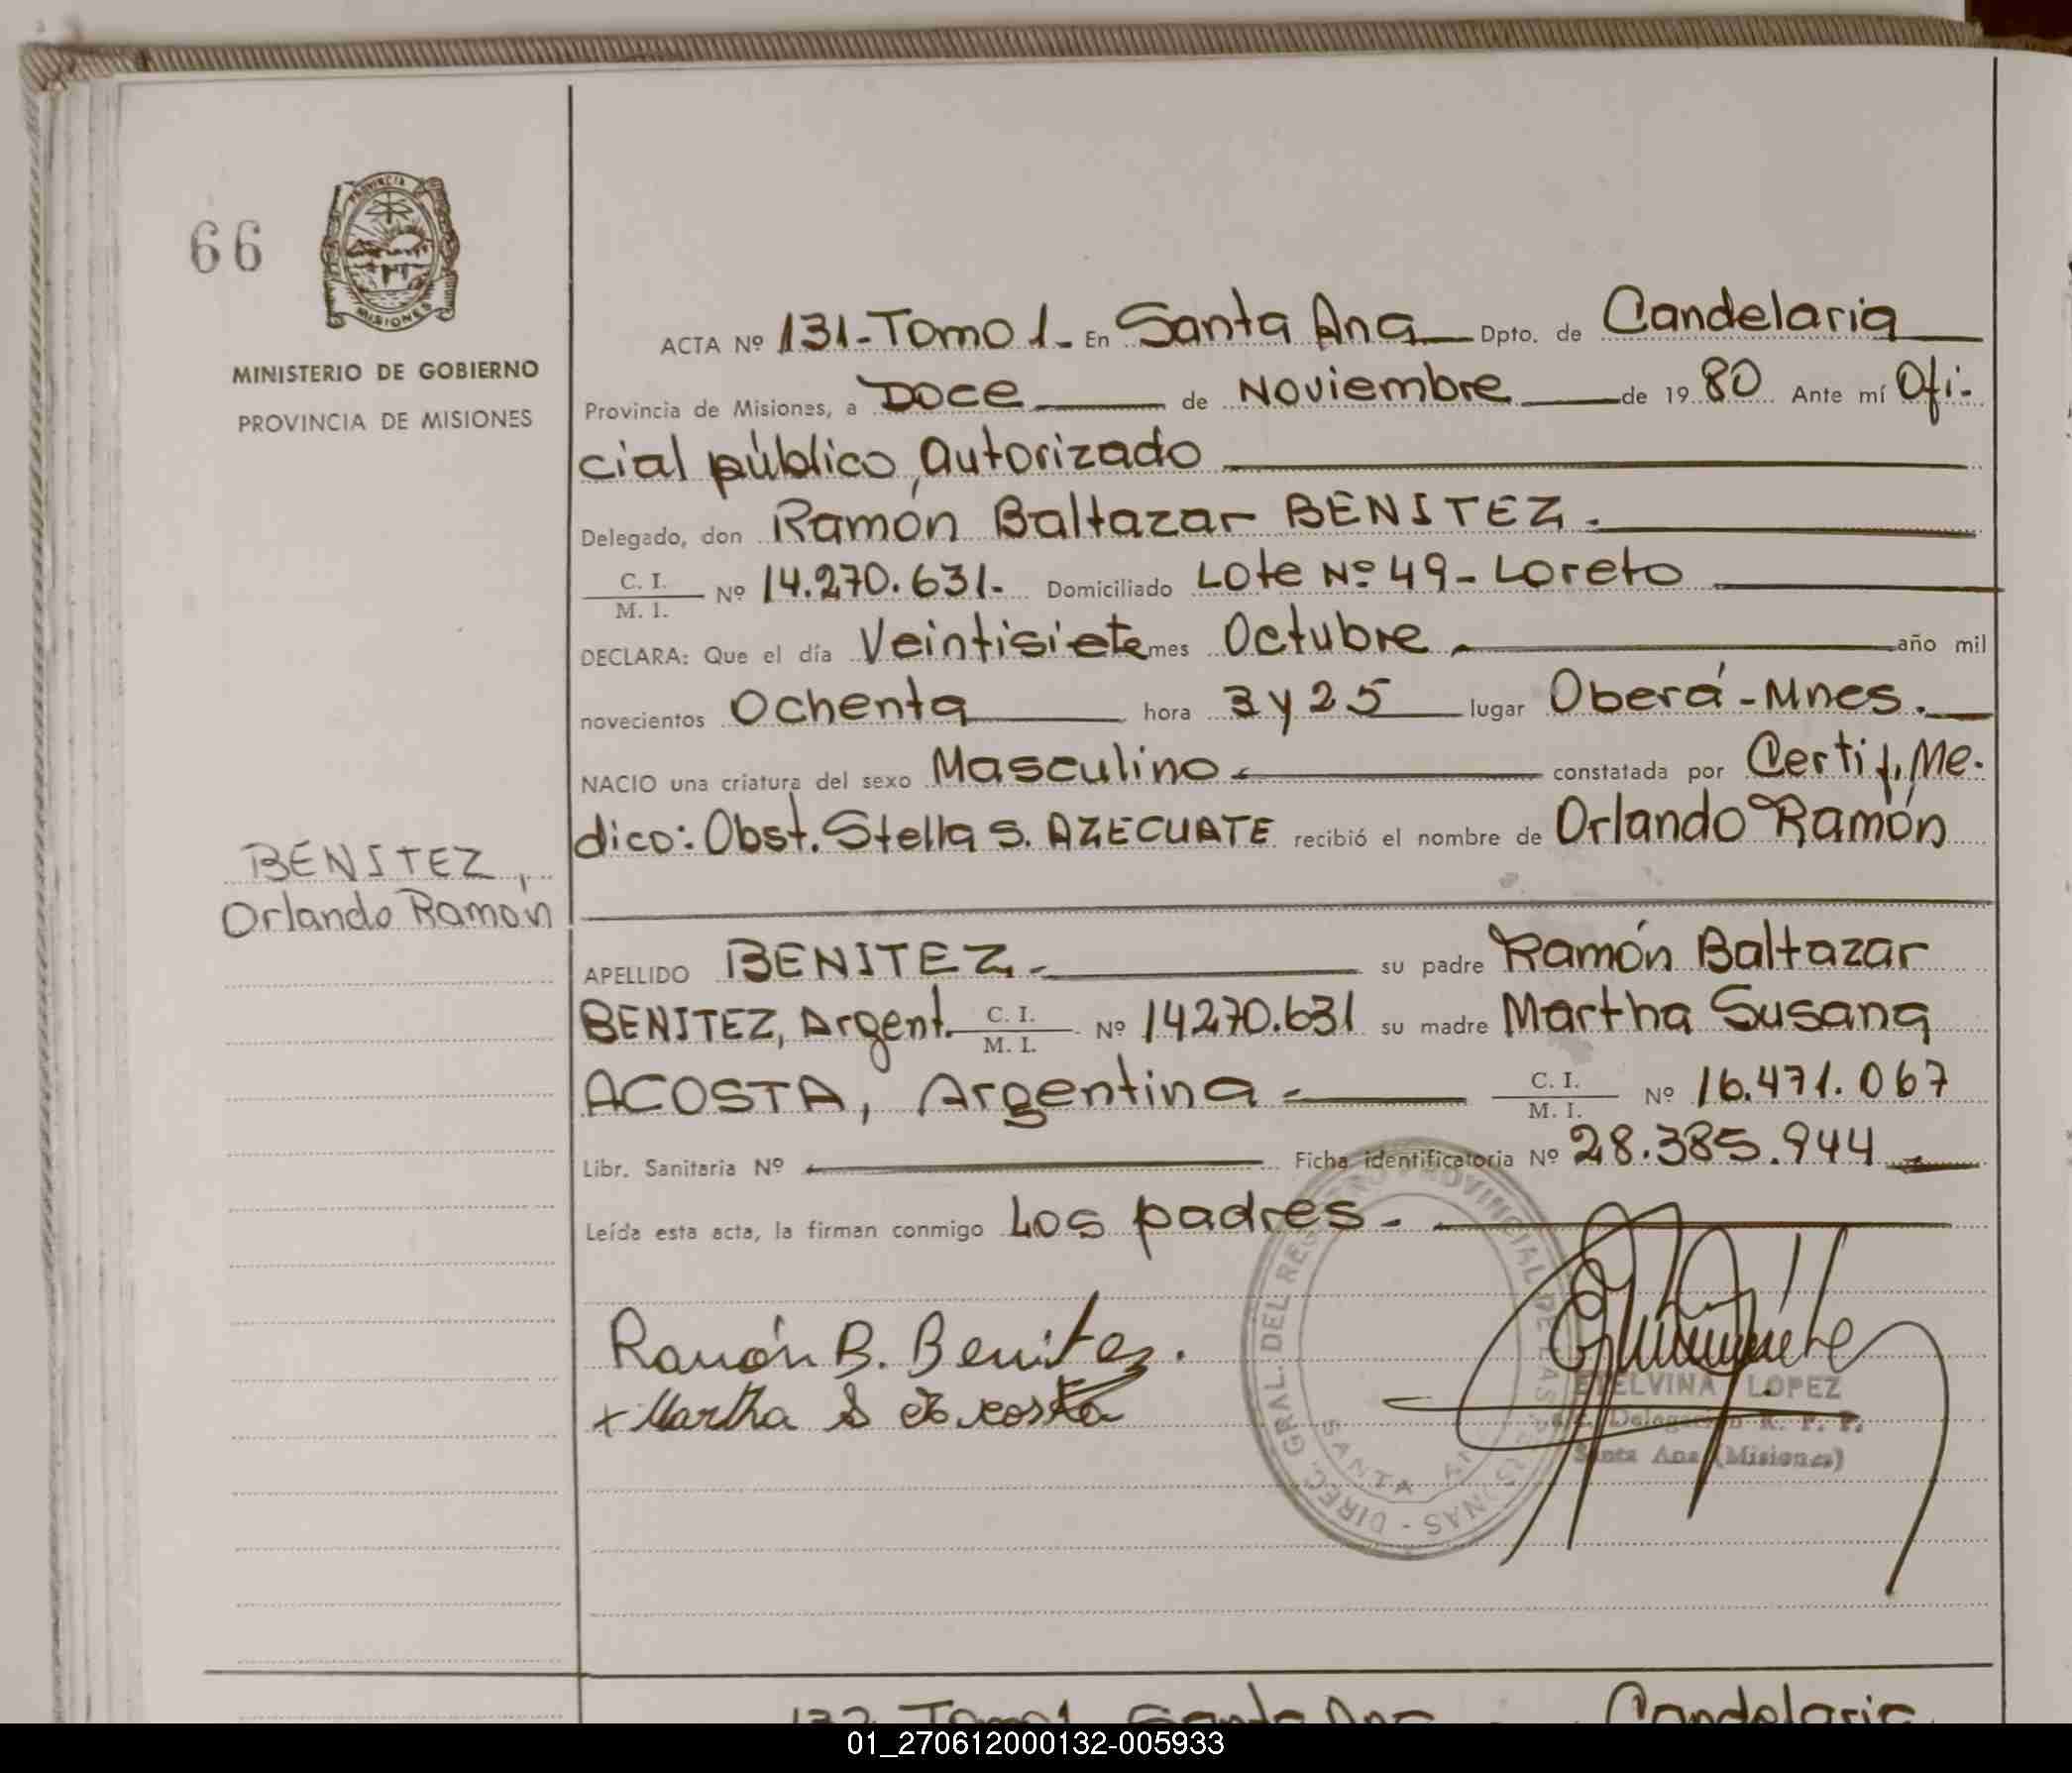 66
PROVINCIA
MISIONES
MINISTERIO DE GOBIERNO
PROVINCIA DE MISIONES
ACTA Nº 131-Tomo 1.- En Santa Ana Dpto. de Candelaria
Provincia de Misiones, a Doce de Noviembre de 1980 Ante mí Ofi-
cial público, autorizado
Delegado, don Ramón Baltazar BENITEZ.
C. I. / M. I. Nº 14.270.631.- Domiciliado Lote Nº 49 - Loreto
DECLARA: Que el día Veintisiete mes Octubre año mil
novecientos Ochenta hora 3 y 25 lugar Oberá - Mnes.
NACIO una criatura del sexo Masculino constatada por Certif. Me-
dico: Obst. Stella S. AZECUATE recibió el nombre de Orlando Ramón
BENITEZ,
Orlando Ramón
APELLIDO BENITEZ.- su padre Ramón Baltazar
BENITEZ, Argent. C. I. / M. I. Nº 14270.631 su madre Martha Susana
ACOSTA, Argentina C. I. / M. I. Nº 16.471.067
Libr. Sanitaria Nº Ficha identificatoria Nº 28.385.944
Leída esta acta, la firman conmigo Los padres.-
Ramón B. Benitez.
+ Martha S Acosta
DIREC. GRAL. DEL REG PROVINCIAL DE LAS PERSONAS
SANTA ANA
ETELVINA LOPEZ
Delegación R. P. P.
Santa Ana (Misiones)
132 Tomo 1 Santa Ana Candelaria
01_270612000132-005933